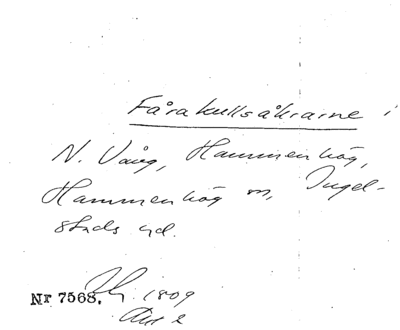 Fårakullsåkrarne i
N. Vång, Hammenhög,
Hammenhög sn, Ingel-
stads hd.
Nr 7568. 1809
Akt 2